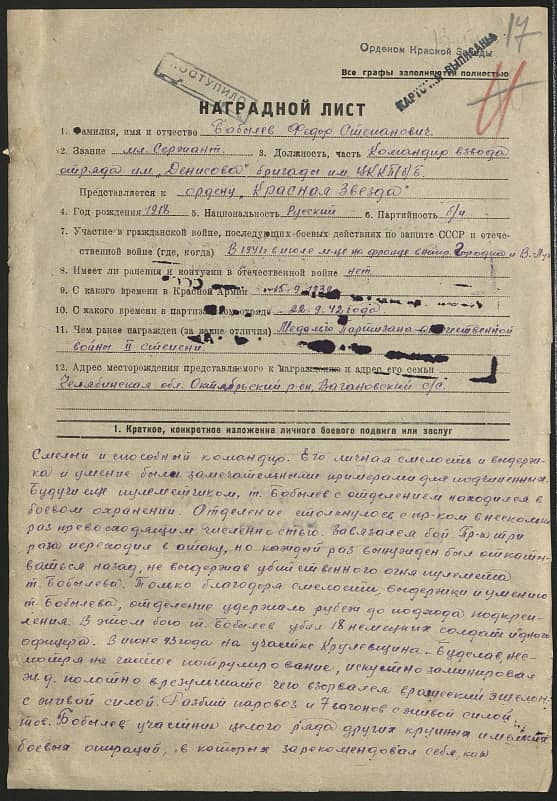 17
Орденом Красной Звезды
ПОСТУПИЛО
КАРТОЧКИ ВЫПИСАНЫ
Все графы заполняются полностью
НАГРАДНОЙ ЛИСТ
1. Фамилия, имя и отчество Бобылев Федор Степанович.
2. Звание мл. Сержант. 3. Должность, часть Командир взвода
отряда им „Денисова" бригады им. ЦККП/б/Б.
Представляется к ордену „Красная Звезда"
4. Год рождения 1918 5. Национальность Русский 6. Партийность б/п
7. Участие в гражданской войне, последующих боевых действиях по защите СССР и отече-
ственной войне (где, когда) В 1941г. в июле м-це на фронте в напр. Городка и В. Лук
8. Имеет ли ранения и контузии в отечественной войне нет.
9. С какого времени в Красной Армии 15. 9. 1939
10. С какого времени в партизанском отряде 22. 9. 42 года
11. Чем ранее награжден (за какие отличия) Медалью Партизана отечественной
войны II степени.
12. Адрес месторождения представляемого к награждению и адрес его семьи
Челябинская обл. Октябрьский р-он, Вагановский с/с.
1. Краткое, конкретное изложение личного боевого подвига или заслуг
Смелый и способный командир. Его личная смелость и выдерж-
ка и умение были замечательными примерами для подчиненных.
Будучи еще пулеметчиком, т. Бобылев с отделением находился в
боевом охранении. Отделение столкнулось с пр-ком в несколько
раз превосходящим численностью. Завязался бой. Пр-к три
раза переходил в атаку, но каждый раз вынужден был откаты-
ваться назад, не выдержав убийственного огня пулемета
т. Бобылева. Только благодаря смелости, выдержки и умению
т. Бобылева, отделение удержало рубеж до подхода подкреп-
ления. В этом бою т. Бобылев убил 18 немецких солдат и одного
офицера. В июне 43 года на участке Крулевщина - Будслав, нес-
мотря на частое патрулирование, искусно заминировал
ж.д. полотно в результате чего взорвался вражеский эшелон
с живой силой. Разбит паровоз и 7 вагонов с живой силой.
Бобылев участник целого ряда других крупных и мелких
боевых операций, в которых зарекомендовал себя, как